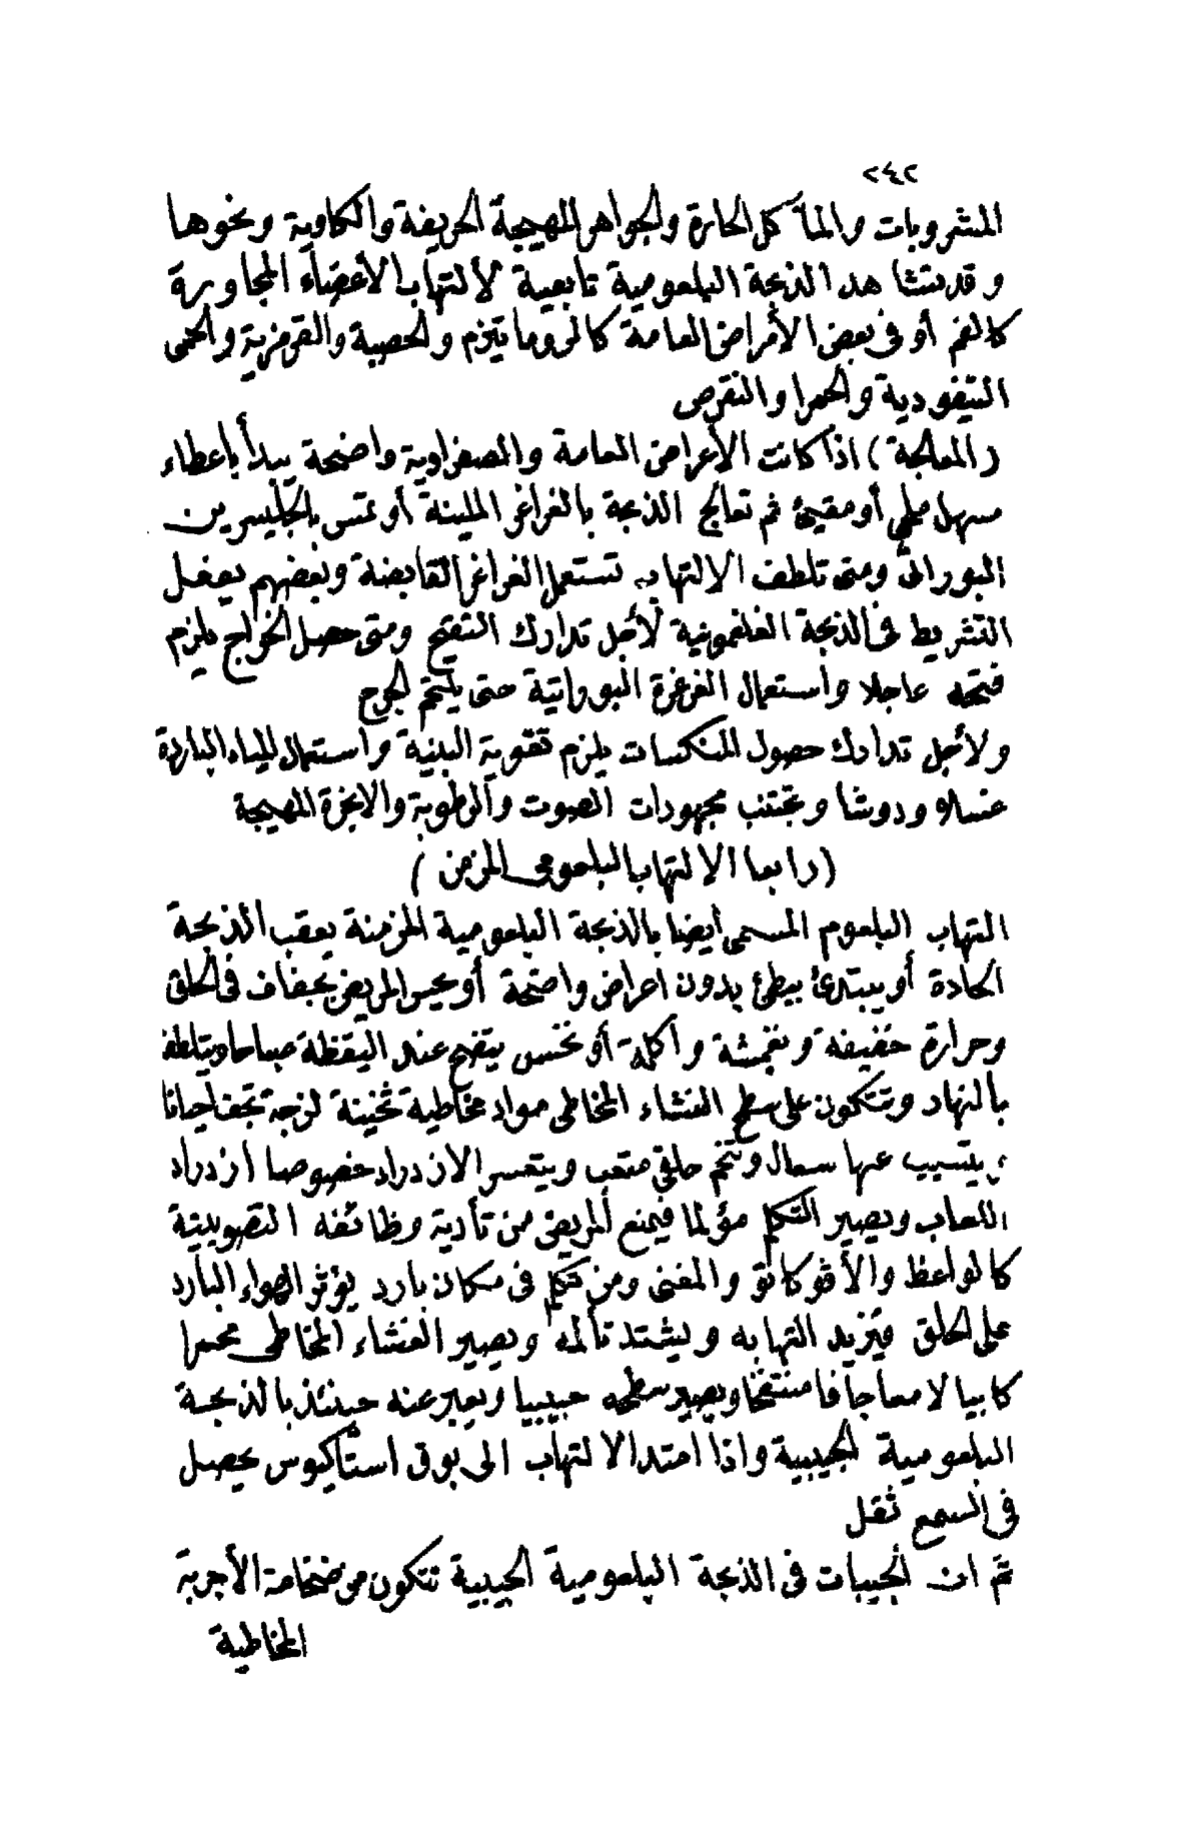 ٢٤٢
المشروبات والمآكل الحارة والجواهر المهيجة الحريفة والكاوية ونحوها
وقد تشاهد الذبحة البلعومية تابعية لالتهاب الأعضاء المجاورة
كالفم أو فى بعض الأمراض العامة كالروماتيزم والحصبة والقرمزية والحمى
التيفودية والحمرا والنقرص
(المعالجة) اذا كانت الأعراض العامة والصفراوية واضحة يبدأ باعطاء
مسهل ملحى أو مقيئ ثم تعالج الذبحة بالغراغر الملينة أو تمس بالجليسرين
البوراتى ومتى تلطف الالتهاب تستعمل الغراغر القابضة وبعضهم يفعل
التشريط فى الذبحة الفلغمونية لأجل تدارك التقيح ومتى حصل الخراج يلزم
فتحه عاجلا واستعمال الغرغرة البوراتية حتى يلتحم الجرح
ولأجل تدارك حصول المنكسات يلزم تقوية البنية واستعمال المياه الباردة
غسلا ودوشا وتجتنب مجهودات الصوت والرطوبة والابخرة المهيجة
(رابعا الالتهاب البلعومى المزمن)
التهاب البلعوم المسمى أيضا بالذبحة البلعومية المزمنة يعقب الذبحة
الحادة أو يبتدئ ببطئ بدون اعراض واضحة أو يحس المريض بجفاف فى الحلق
وحرارة خفيفة ونغمشة وأكلة أو نخس يتضح عند اليقظة صباحا ويتلطف
بالنهار وتتكون على سطح الغشاء المخاطى مواد مخاطية ثخينة لزجة تجف أحيانا
ويتسبب عنها سعال وتنخم حلقى متعب ويتعسر الازدراد خصوصا ازدراد
اللعاب ويصير التكلم مؤلما فيمنع المريض من تأدية وظائفه التصويتية
كالواعظ والأفوكاتو والمغنى ومن تكلم فى مكان بارد يؤثر الهواء البارد
على الحلق فيزيد التهابه ويشتد تألمه ويصير الغشاء المخاطى محمرا
كابيا لامعا جافا منتفخا ويصير سطحه حبيبيا ويعبر عنه حينئذ بالذبحة
البلعومية الحبيبية واذا امتد الالتهاب الى بوق استاكيوس يحصل
فى السمع ثقل
ثم ان الحبيبات فى الذبحة البلعومية الحبيبية تتكون من ضخامة الأجربة
المخاطية